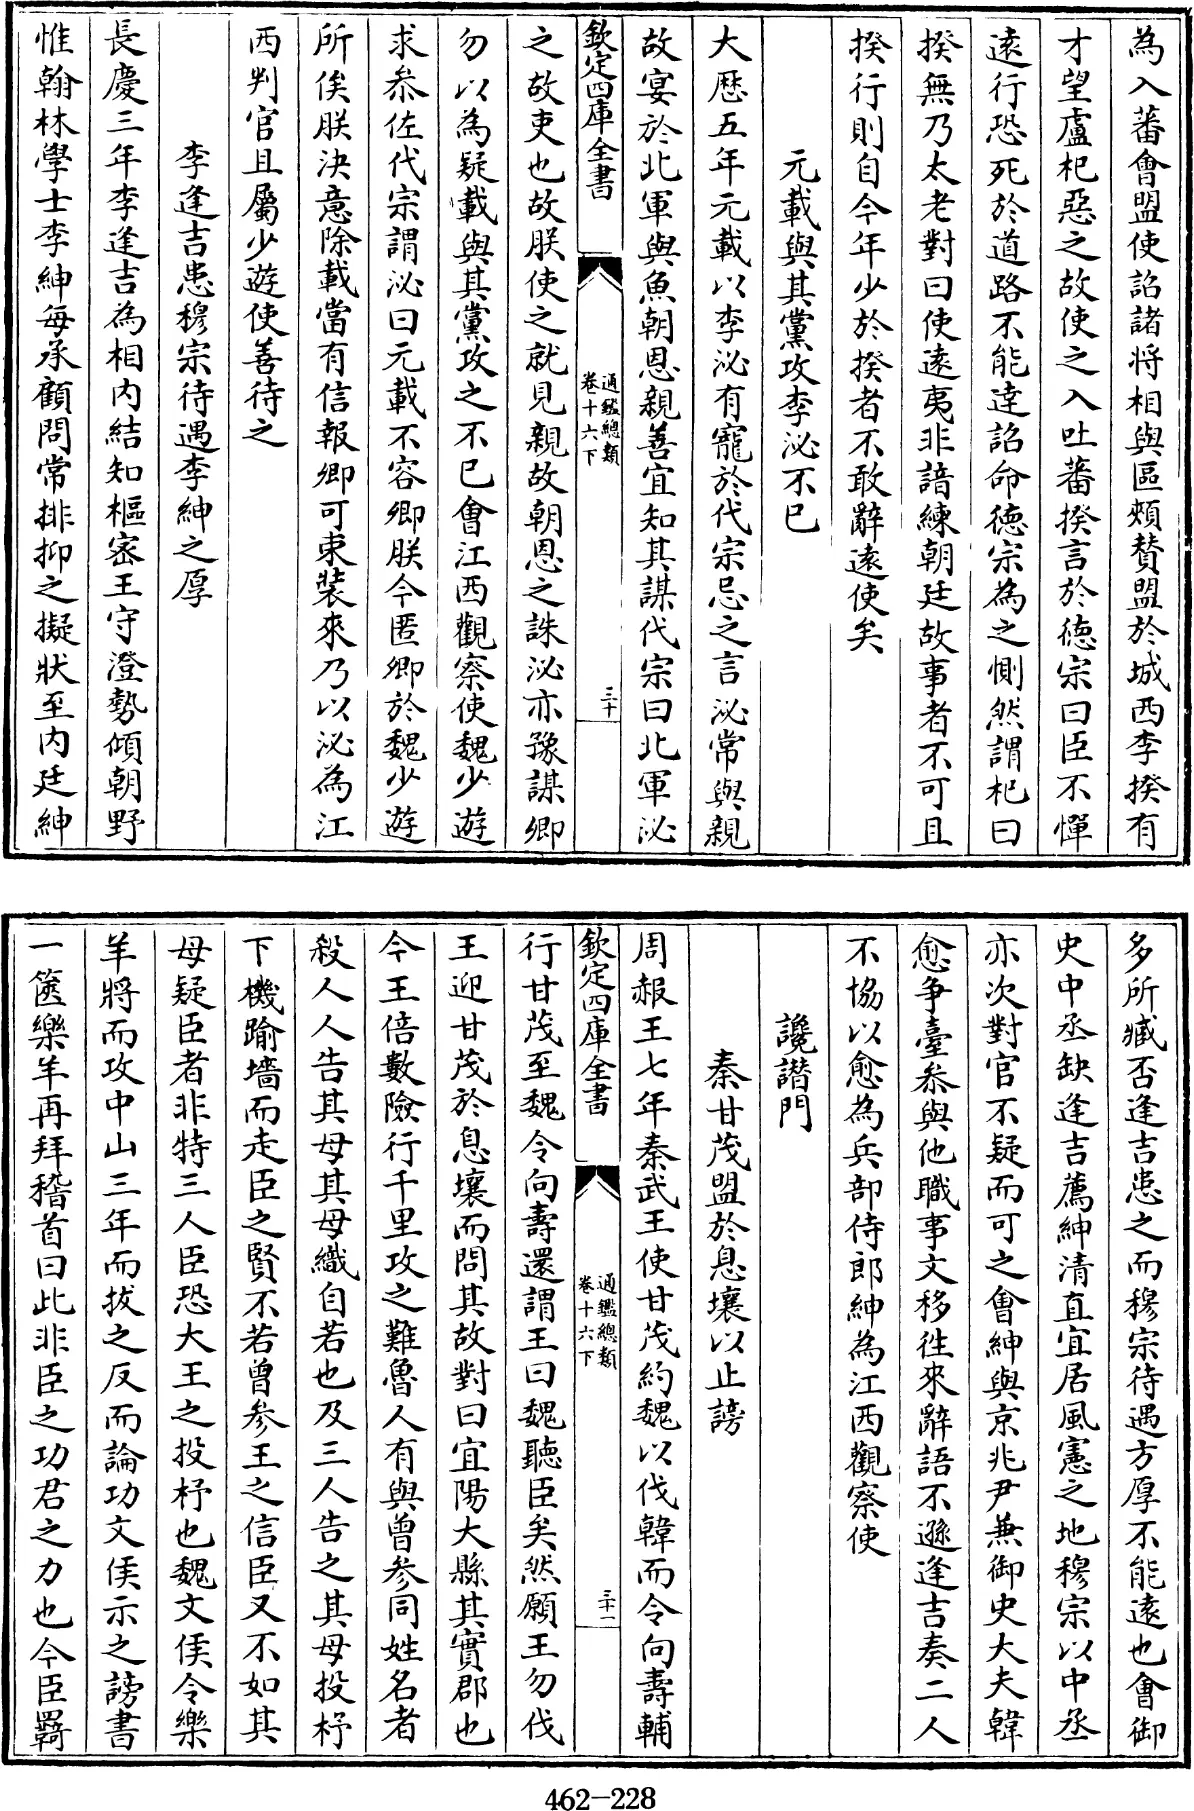 為入蕃會盟使詔諸将相與區頰賛盟於城西李揆有
才望盧杞惡之故使之入吐蕃揆言於徳宗曰臣不憚
逺行恐死於道路不能逹詔命徳宗為之惻然謂杞曰
揆無乃太老對曰使逺夷非諳練朝廷故事者不可且
揆行則自今年少於揆者不敢辭逺使矣
元載與其黨攻李泌不已
大厯五年元載以李泌有寵於代宗忌之言泌常與親
故宴於北軍與魚朝恩親善宜知其謀代宗曰北軍泌
欽定四庫全書
通鑑總類
卷十六下
三十
之故吏也故朕使之就見親故朝恩之誅泌亦豫謀卿
勿以為疑載與其黨攻之不已會江西觀察使魏少遊
求叅佐代宗謂泌曰元載不容卿朕今匿卿於魏少遊
所俟朕決意除載當有信報卿可束装來乃以泌為江
西判官且屬少遊使善待之
李逢吉患穆宗待遇李紳之厚
長慶三年李逢吉為相内結知樞密王守澄勢傾朝野
惟翰林學士李紳每承顧問常排抑之擬狀至内廷紳
多所臧否逢吉患之而穆宗待遇方厚不能逺也會御
史中丞缺逢吉薦紳清直宜居風憲之地穆宗以中丞
亦次對官不疑而可之會紳與京兆尹兼御史大夫韓
愈爭臺叅與他職事文移徃來辭語不遜逢吉奏二人
不協以愈為兵部侍郎紳為江西觀察使
讒譖門
秦甘茂盟於息壤以止謗
周赧王七年秦武王使甘茂約魏以伐韓而令向壽輔
欽定四庫全書
通鑑總類
卷十六下
三十一
行甘茂至魏令向壽還謂王曰魏聽臣矣然願王勿伐
王迎甘茂於息壤而問其故對曰宜陽大縣其實郡也
今王倍數險行千里攻之難魯人有與曾参同姓名者
殺人人告其母其母織自若也及三人告之其母投杼
下機踰墻而走臣之賢不若曾参王之信臣又不如其
母疑臣者非特三人臣恐大王之投杼也魏文侯令樂
羊將而攻中山三年而拔之反而論功文侯示之謗書
一篋樂羊再拜稽首曰此非臣之功君之力也今臣羇
462-228